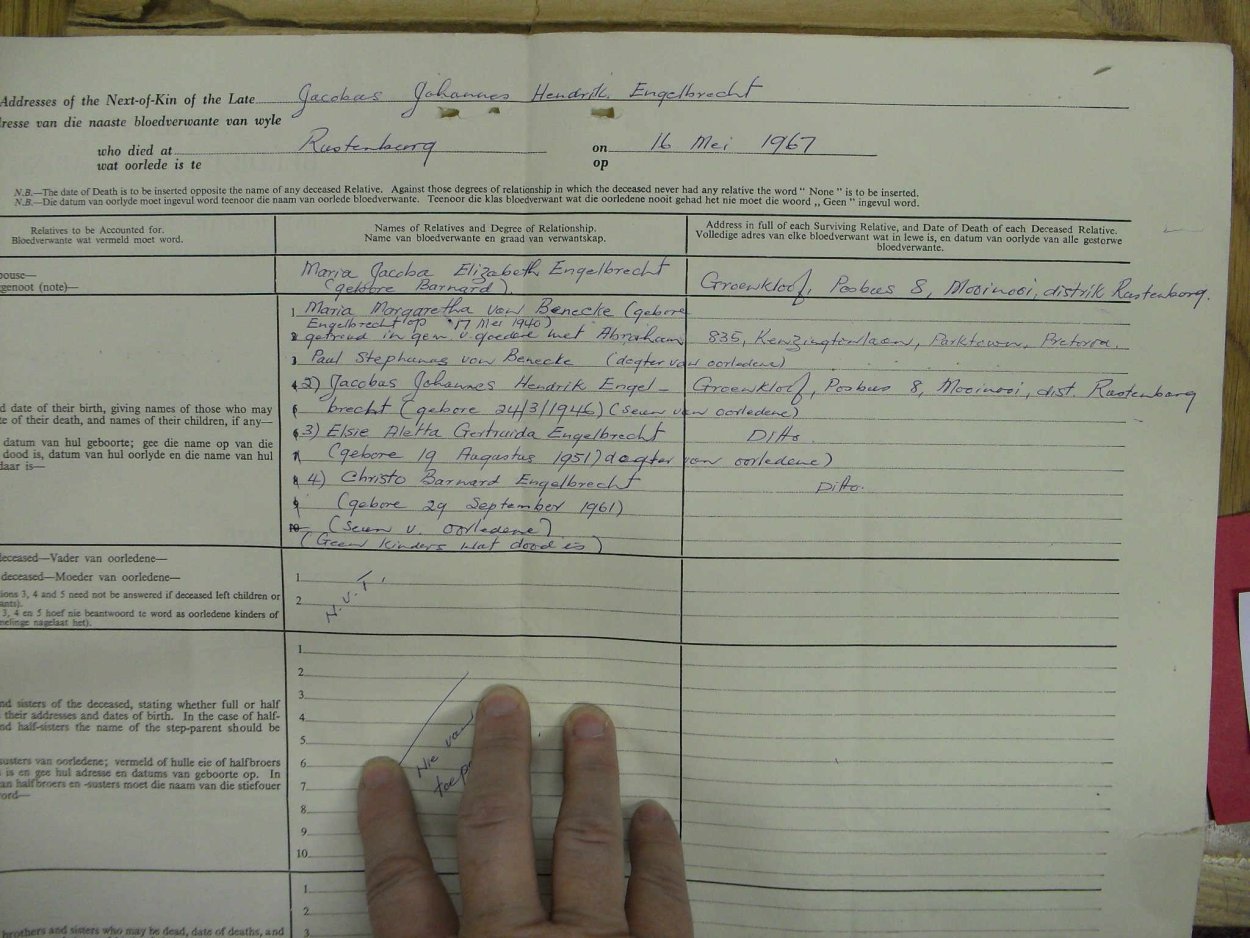 Addresses of the Next-of-Kin of the Late Jacobus Johannes Hendrik Engelbrecht
resse van die naaste bloedverwante van wyle
who died at Rustenburg on 16 Mei 1967
wat oorlede is te op
N.B.—The date of Death is to be inserted opposite the name of any deceased Relative. Against those degrees of relationship in which the deceased never had any relative the word " None " is to be inserted.
N.B.—Die datum van oorlyde moet ingevul word teenoor die naam van oorlede bloedverwante. Teenoor die klas bloedverwant wat die oorledene nooit gehad het nie moet die woord ,, Geen " ingevul word.
Relatives to be Accounted for.
Bloedverwante wat vermeld moet word.
Names of Relatives and Degree of Relationship.
Name van bloedverwante en graad van verwantskap.
Address in full of each Surviving Relative, and Date of Death of each Deceased Relative.
Volledige adres van elke bloedverwant wat in lewe is, en datum van oorlyde van alle gestorwe
bloedverwante.
pouse—
genoot (note)—
Maria Jacoba Elizabeth Engelbrecht
(gebore Barnard).
Groenkloof, Posbus 8, Mooinooi, distrik Rustenburg.
1 Maria Margaretha von Benecke (gebore
Engelbrecht op 17 Mei 1940)
2 getroud in gem. v. goedere met Abraham 835, Kenzingtonlaan, Parktown, Pretoria.
3 Paul Stephanus von Benecke (dogter van oorledene)
4 2) Jacobus Johannes Hendrik Engel- Groenkloof, Posbus 8, Mooinooi, dist. Rustenburg
5 brecht (gebore 24/3/1946) (seun van oorledene)
6 3) Elsie Aletta Gertruida Engelbrecht Ditto.
7 (gebore 19 Augustus 1951) dogter van oorledene)
8 4) Christo Barnard Engelbrecht Ditto.
9 (gebore 29 September 1961)
10 (seun v. oorledene)
(Geen kinders wat dood is)
d date of their birth, giving names of those who may
e of their death, and names of their children, if any—
datum van hul geboorte; gee die name op van die
dood is, datum van hul oorlyde en die name van hul
daar is—
deceased—Vader van oorledene—
deceased—Moeder van oorledene—
tions 3, 4 and 5 need not be answered if deceased left children or
ants).
3, 4 en 5 hoef nie beantwoord te word as oorledene kinders of
melinge nagelaat het).
1
2
N.V.T.
nd sisters of the deceased, stating whether full or half
their addresses and dates of birth. In the case of half-
nd half-sisters the name of the step-parent should be
susters van oorledene; vermeld of hulle eie of halfbroers
is en gee hul adresse en datums van geboorte op. In
an halfbroers en -susters moet die naam van die stiefouer
ord—
1
2
3
4
5
6
7
8
9
10
Nie van
toep
1
2
3
brothers and sisters who may be dead, date of deaths, and